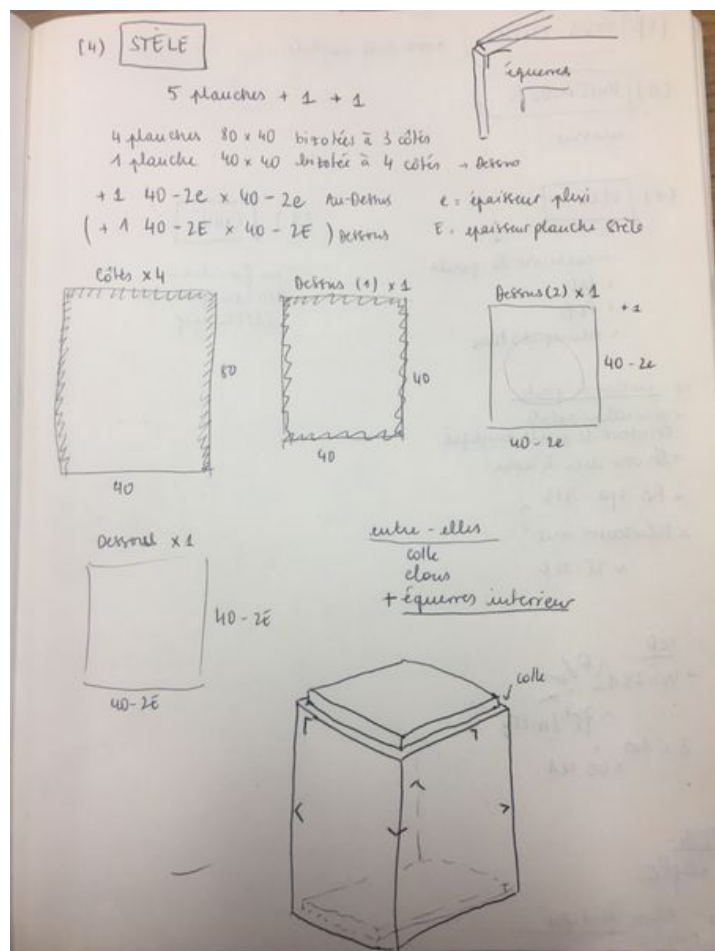 (4) STÈLE
équerres
5 planches + 1 + 1
4 planches 80 x 40 bizotées à 3 côtés
1 planche 40 x 40 bizotée à 4 côtés → Dessus
+ 1 40-2e x 40-2e Au-Dessus e = épaisseur plexi
(+ 1 40-2E x 40-2E) Dessous E = epaisseur planche stèle
Côtés x4
80
40
Dessus (1) x 1
40
40
Dessus (2) x 1
+1
40-2e
40-2e
x 1
40-2E
40-2E
entre-elles
colle
clous
+ équerres interieur
colle